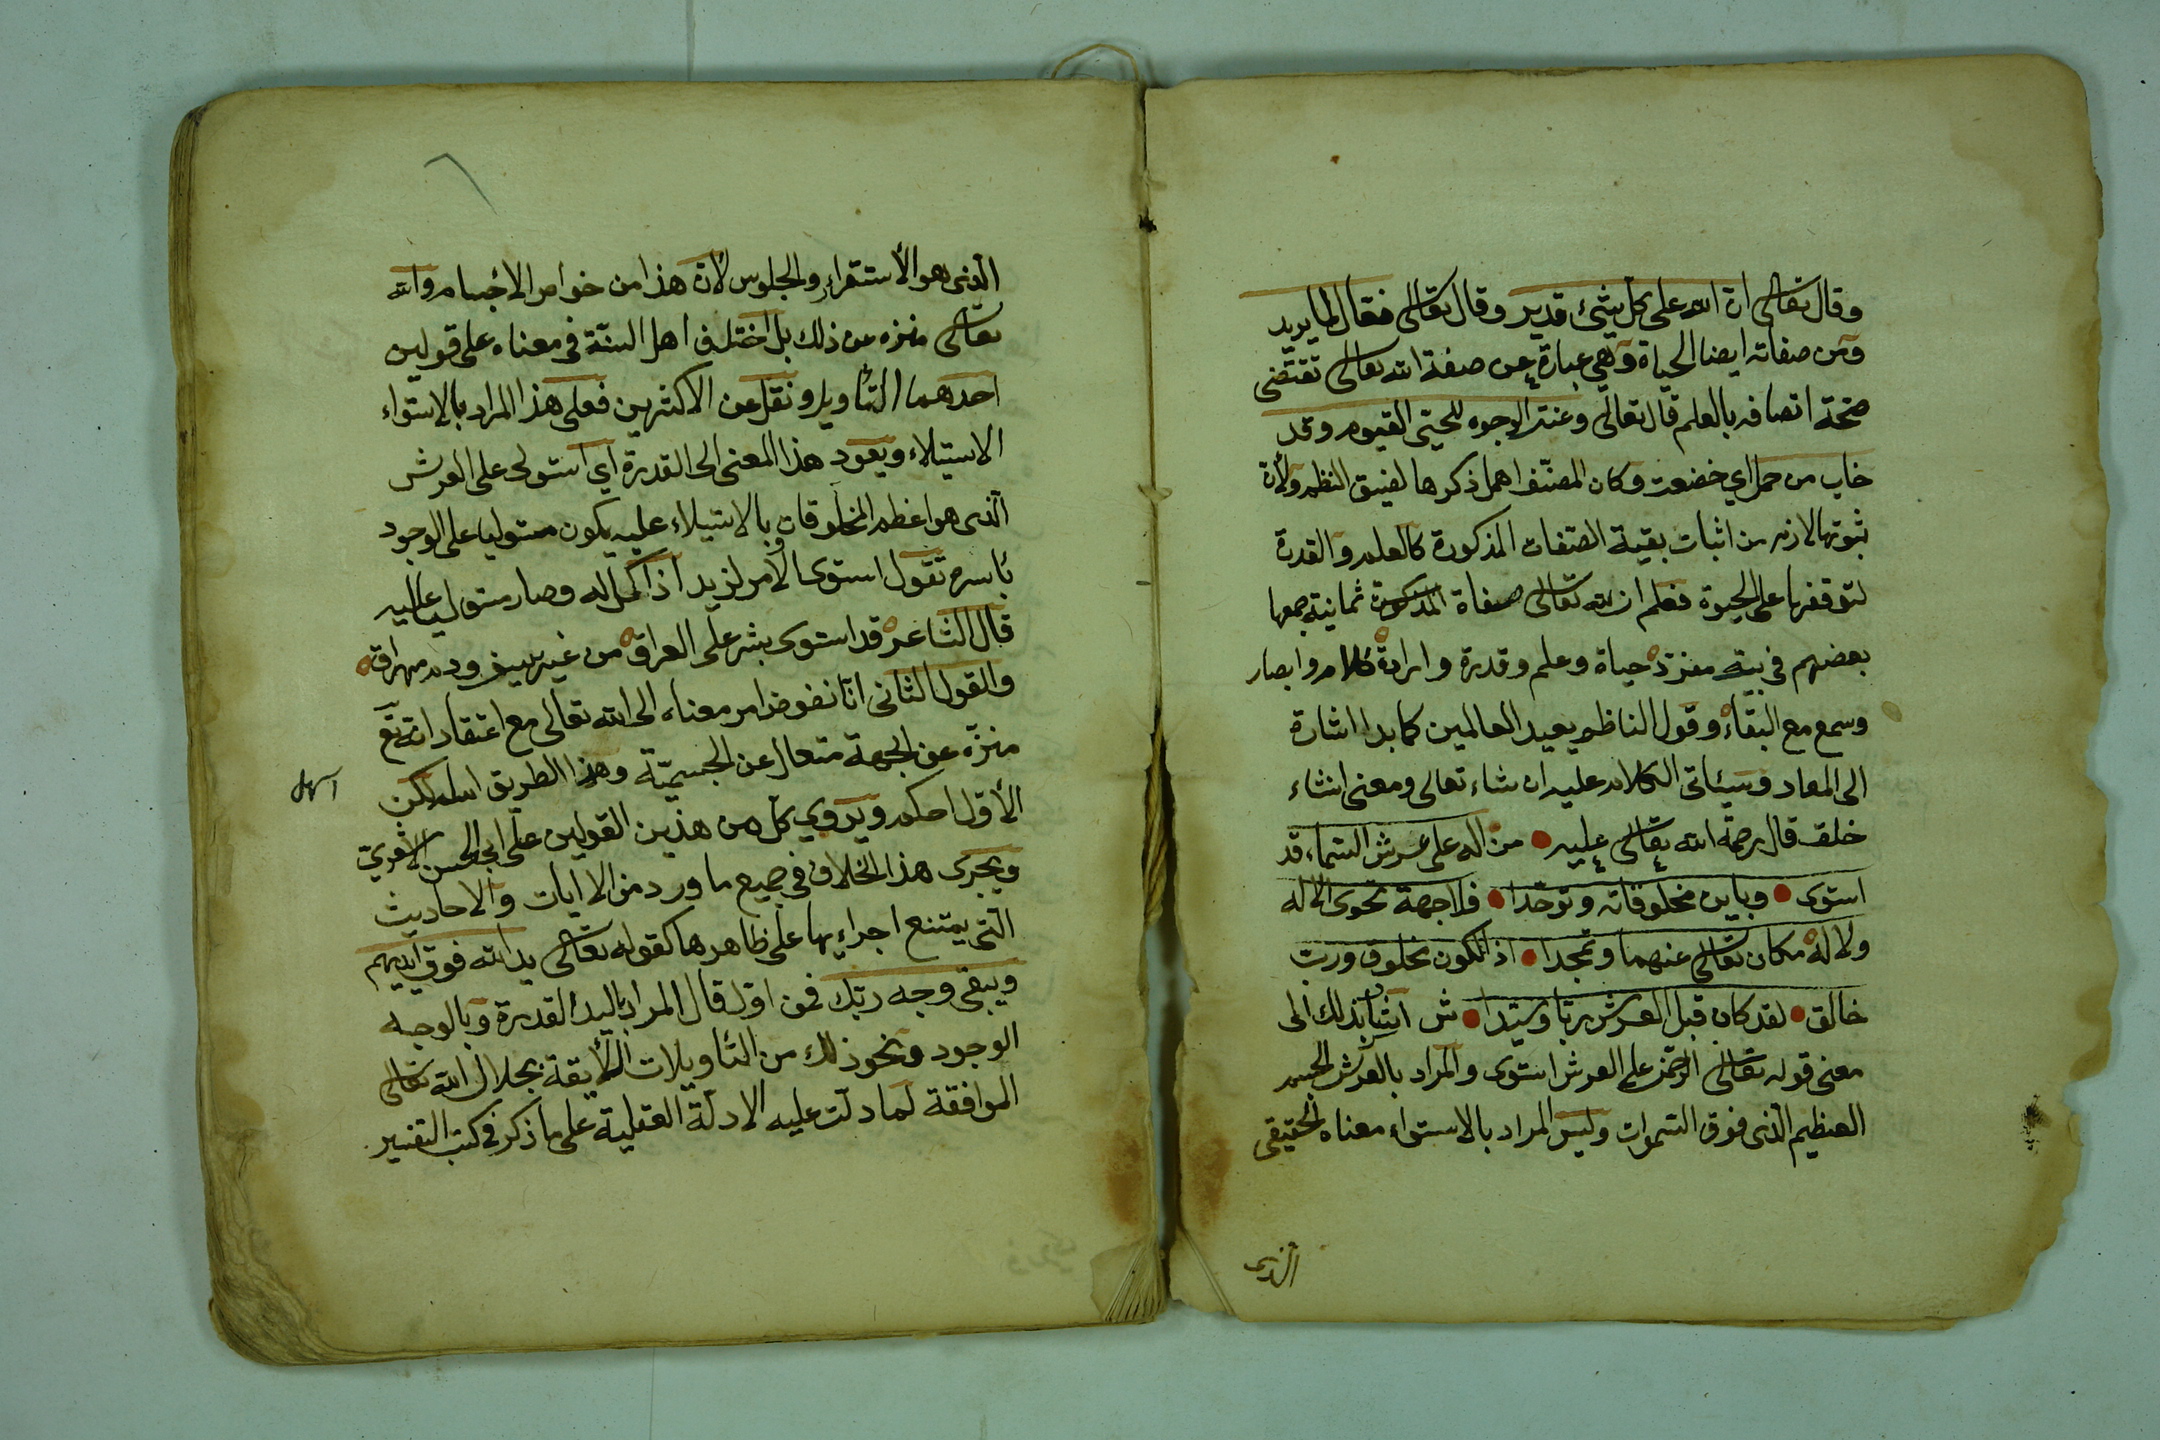 وقال تعالى ان الله على كل شيئ قدير وقال تعالى فعّال لما يريد
ومن صفاته ايضا الحياة وهي عبارة عن صفة الله تعالى تقتضى
صحّة اتصافه بالعلم قال تعالى وعنت الوجوه للحيّ القيوم وقد
خاب من حمل اي خضعت وكان المصنّف اهمل ذكرها لضيق النظم ولأن
ثبوتها لازم من اثبات بقية الصّفات المذكورة كالعلم والقدرة
لتوقفها على الحيوة فعلم ان لله تعالى صفاة المذكورة ثمانية جمعها
بعضهم في بيت مفرد حياة وعلم وقدرة وارادة كلام وابصار
وسمع مع البقاء وقول الناظم يعيد العالمين كما بدا اشارة
الى المعاد وسيئاتى الكلام عليه ان شاء تعالى ومعنى انشاء
خلق قال رحمة الله تعالى عليه من اله على عرش السماء قد
استوى وباين مخلوقاته وتوحّدا فلا جهة تحوى الاله
ولا له مكان تعالى عنهما وتمجدا اذ الكون مخلوق وربّ
خالق لقد كان قبل العرش ربّا وسيّدا ش اشار بذلك الى
معنى قوله تعالى الرحمن على العرش استوى والمراد بالعرش الجسم
العظيم الّذى فوق السموات وليس المراد بالاستواء معناه الحقيقى
الذى
الّذى هو الأستقراء والجلوس لأن هذا من خواص الاجسام والله
تعالى منزه عن ذلك بل اختلف اهل السنّة في معناه على قولين
احدهما التأويل ونقل عن الاكثرين فعلى هذا المراد بالاستواء
الاستيلاء ويعود هذا المعنى الى القدرة اى استولى على العرش
الّذى هو اعظم المخلوقات وبالاستيلاء عليه يكون مستوليا على الوجود
باسره تقول استوى الأمر لزيد اذا كمل له وصار مستوليا عليه
قال الشاعر قد استوى بشر على العراق من غير سيف ودم مهراق
والقول الثانى انّا نفوض امر معناه الى الله تعالى مع اعتقاد انه تع
منزّه عن الجهة متعال عن الجسميّة وهذا الطريق اسلم لكن
الأوّل احكم ويروي كلّ من هذين القولين على ابى الحسن الاشعريّ
ويجرى هذا الخلاف في جميع ما ورد من الايات والاحاديث
الّتى يمتنع اجراءها على ظاهرها كقوله تعالى يد الله فوق ايديهم
ويبقى وجه ربّك فمن اوّل قال المراد باليد القدرة وبالوجه
الوجود ونحو ذلك من التأويلات اللّايقة بجلال الله تعالى
الموافقة لما دلّت عليه الادلّة العقلية على ما ذكر في كتب التفسير